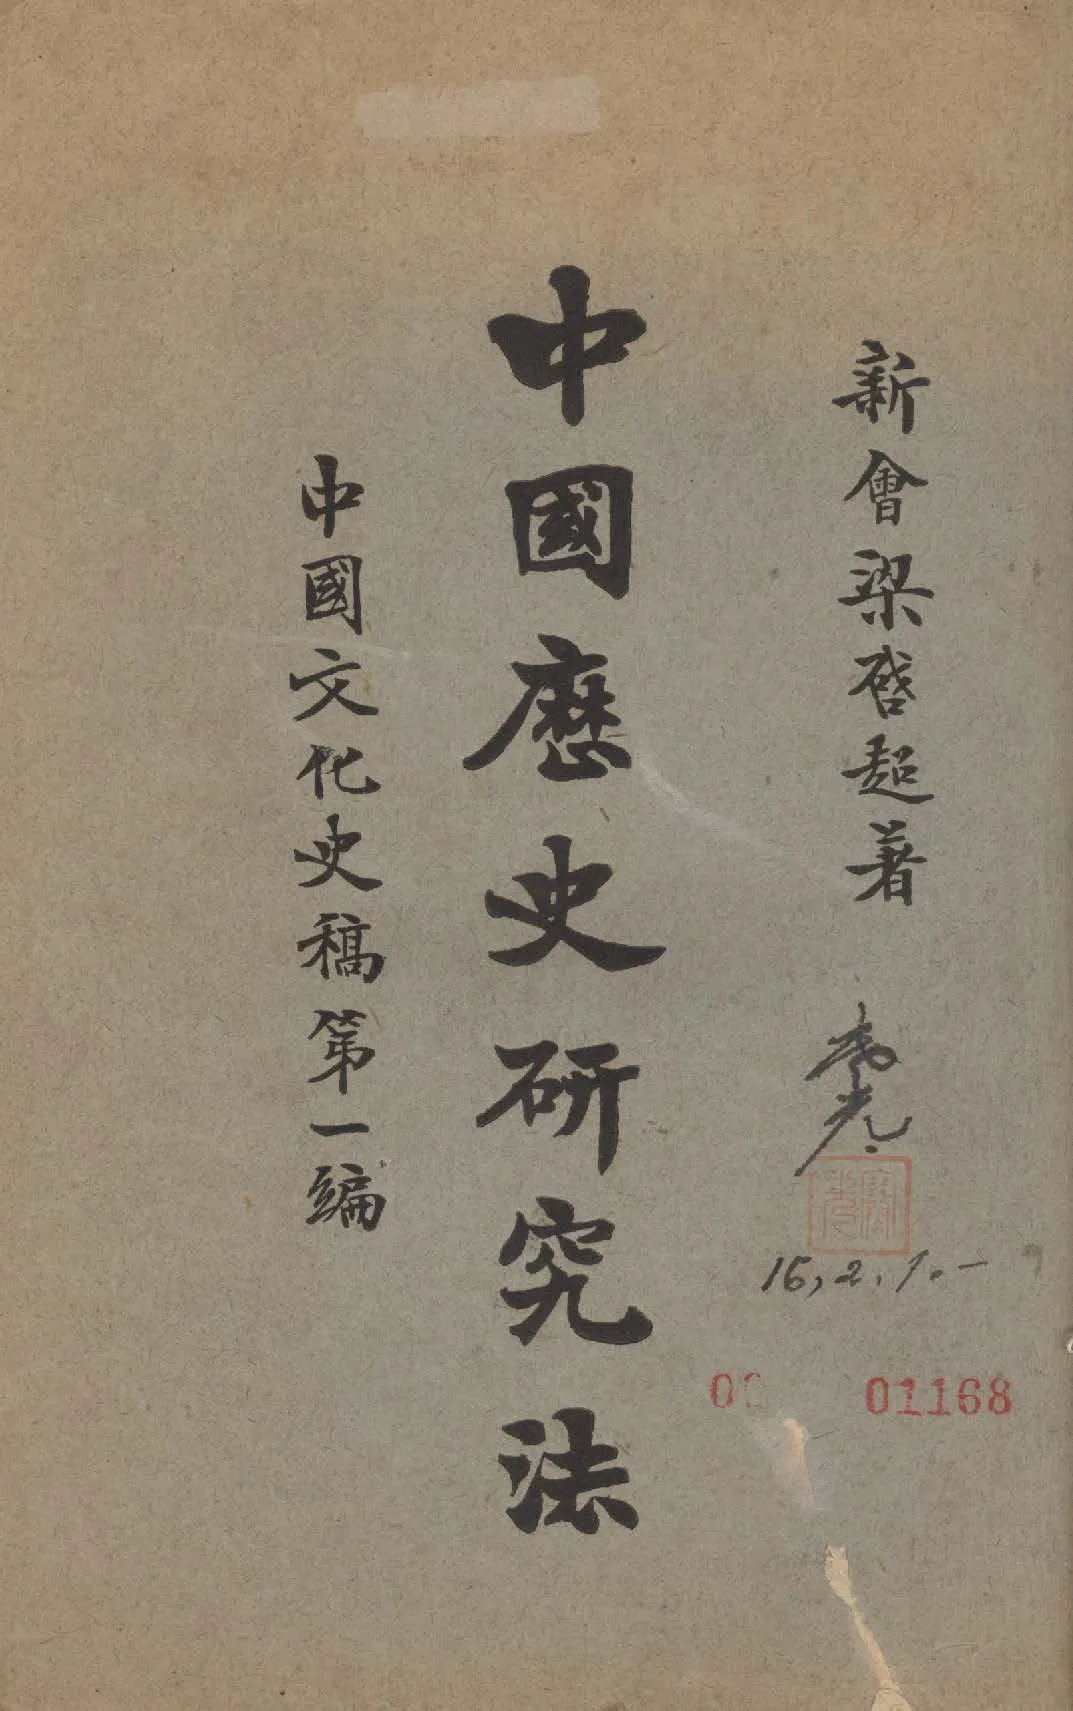 新會梁啓超著
中國歷史研究法
中國文化史稿第一編
15,2,1.一
01168